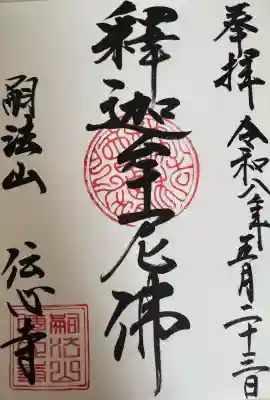 奉拝 令和八年五月二十三日
釋迦牟尼佛
嗣法山 伝心寺